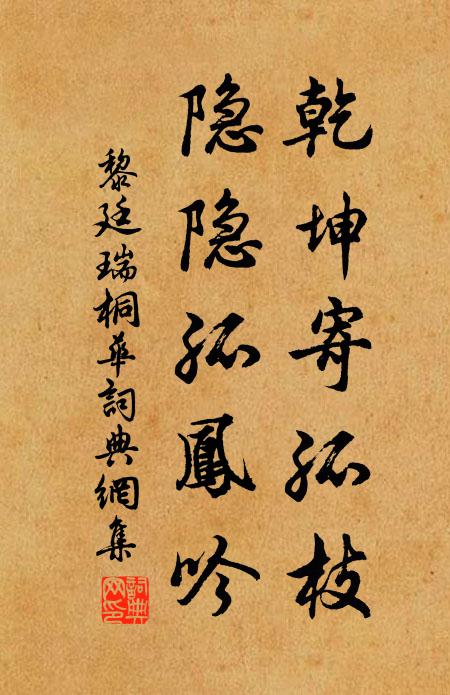 乾坤寄孤枝
隐隐孤鳳吟
黎廷瑞桐華詞典網集
詞典網印